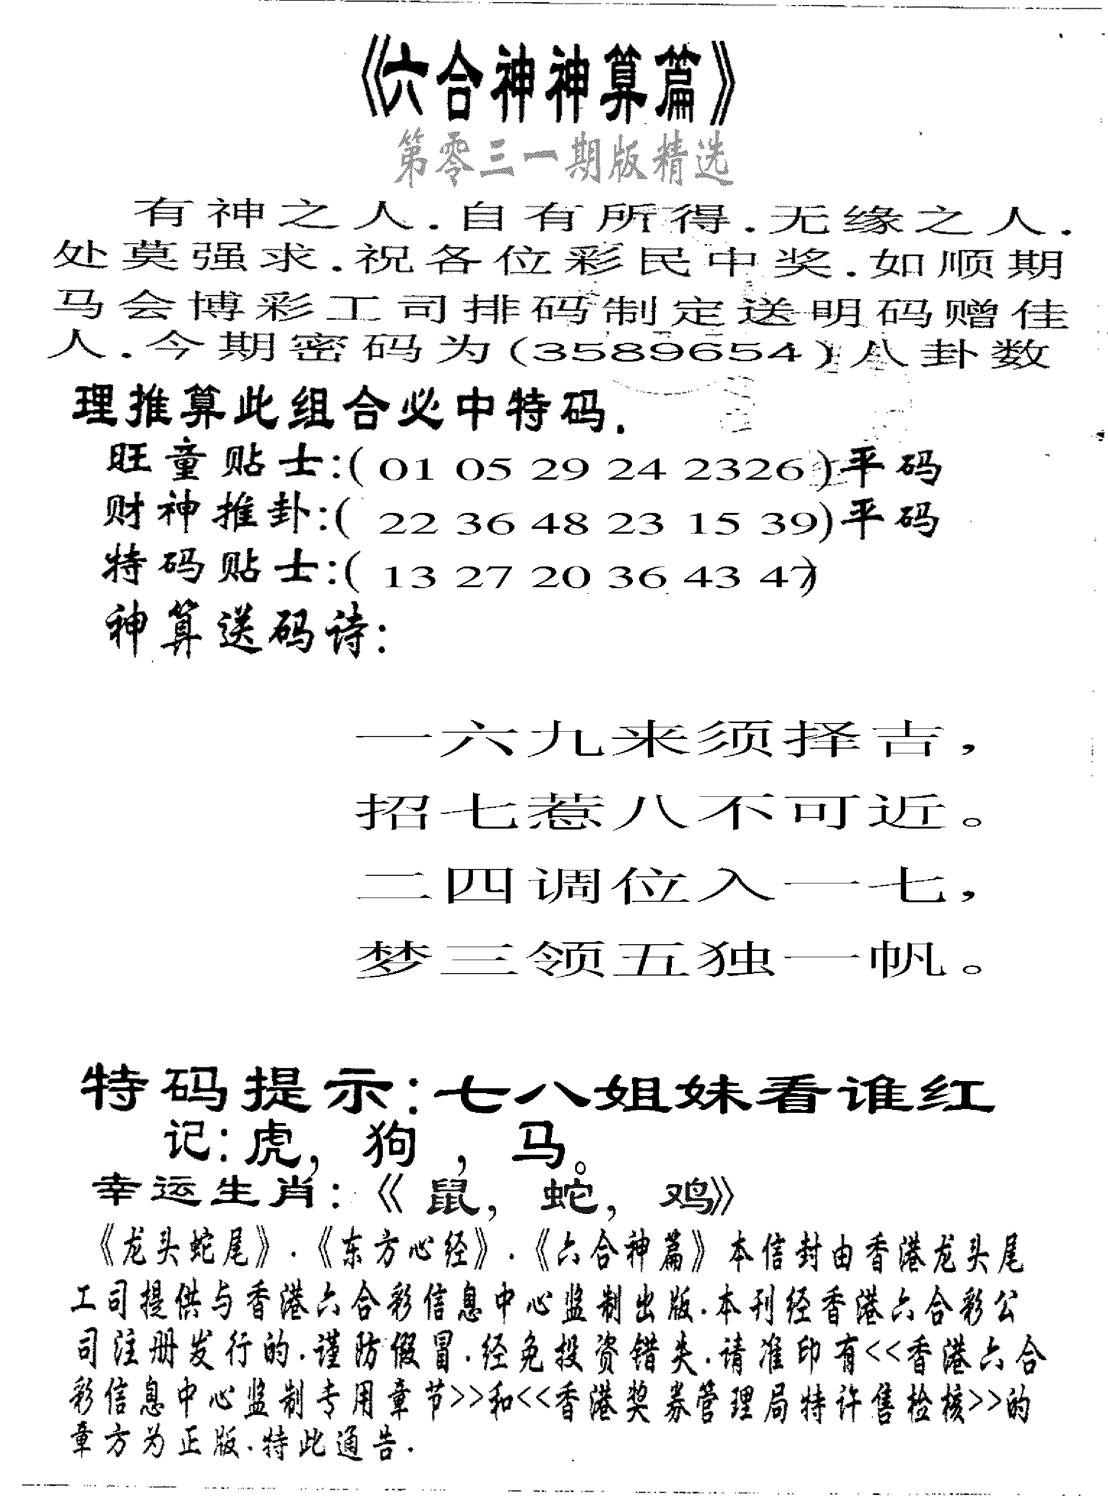 《六合神神算篇》
第零三一期版精选
有神之人.自有所得.无缘之人.
处莫强求.祝各位彩民中奖.如顺期
马会博彩工司排码制定送明码赠佳
人.今期密码为(3589654)八卦数
理推算此组合必中特码.
旺童贴士:(01 05 29 24 2326)平码
财神推卦:(22 36 48 23 15 39)平码
特码贴士:(13 27 20 36 43 47)
神算送码诗:
一六九来须择吉,
招七惹八不可近。
二四调位入一七,
梦三领五独一帆。
特码提示:七八姐妹看谁红
记:虎,狗,马。
幸运生肖:《鼠,蛇,鸡》
《龙头蛇尾》.《东方心经》.《六合神篇》本信封由香港龙头尾
工司提供与香港六合彩信息中心监制出版.本刊经香港六合彩公
司注册发行的.谨防假冒.经免投资错失.请准印有<<香港六合
彩信息中心监制专用章节>>和<<香港奖券管理局特许售检核>>的
章方为正版.特此通告.